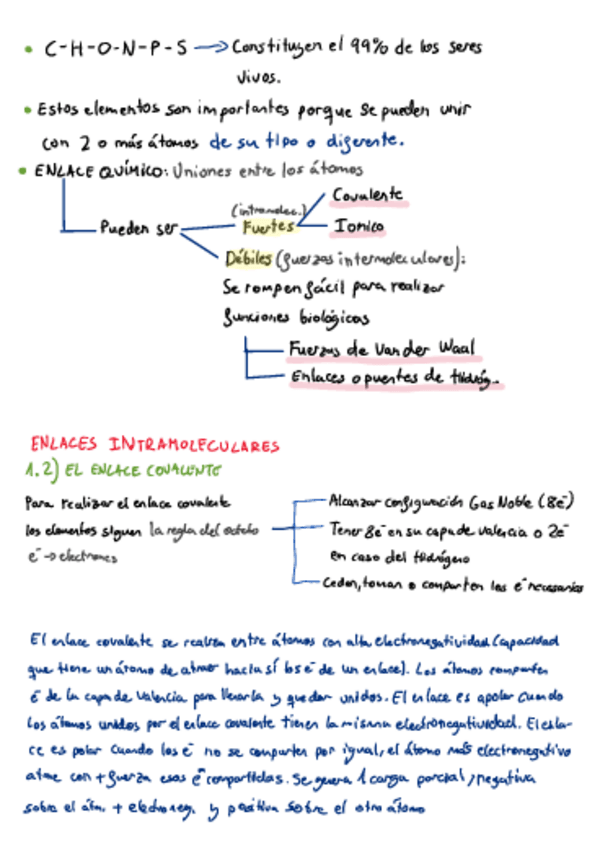 C-H-O-N-P-S → Constituyen el 99% de los seres
vivos.
Estos elementos son importantes porque se pueden unir
con 2 o más átomos de su tipo o diferente.
ENLACE QUÍMICO: Uniones entre los átomos
Covalente
(intramolec.)
Pueden ser Fuertes Ionico
Débiles (fuerzas intermoleculares):
Se rompen fácil para realizar
funciones biológicas
Fuerzas de Van der Waal
Enlaces o puentes de Hidróg.
ENLACES INTRAMOLECULARES
1.2) EL ENLACE COVALENTE
Para realizar el enlace covalente
los elementos siguen la regla del octeto
e⁻→ electrones
Alcanzar configuración Gas Noble (8e⁻)
Tener 8e⁻ en su capa de valencia o 2e⁻
en caso del Hidrógeno
Ceden, toman o comparten los e⁻ necesarios
El enlace covalente se realiza entre átomos con alta electronegatividad (capacidad
que tiene un átomo de atraer hacia sí los e⁻ de un enlace). Los átomos comparten
e⁻ de la capa de valencia para llenarla y quedar unidos. El enlace es apolar cuando
los átomos unidos por el enlace covalente tienen la misma electronegatividad. El enla-
ce es polar cuando los e⁻ no se comparten por igual, el átomo más electronegativo
atrae con + fuerza esos e⁻ compartidos. Se genera 1 carga parcial, negativa
sobre el átm. + electroneg. y positiva sobre el otro átomo